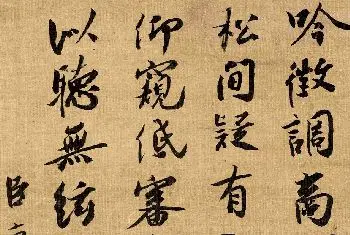 吟徵調商
松間疑有
仰窺低審
以聽無絃
臣